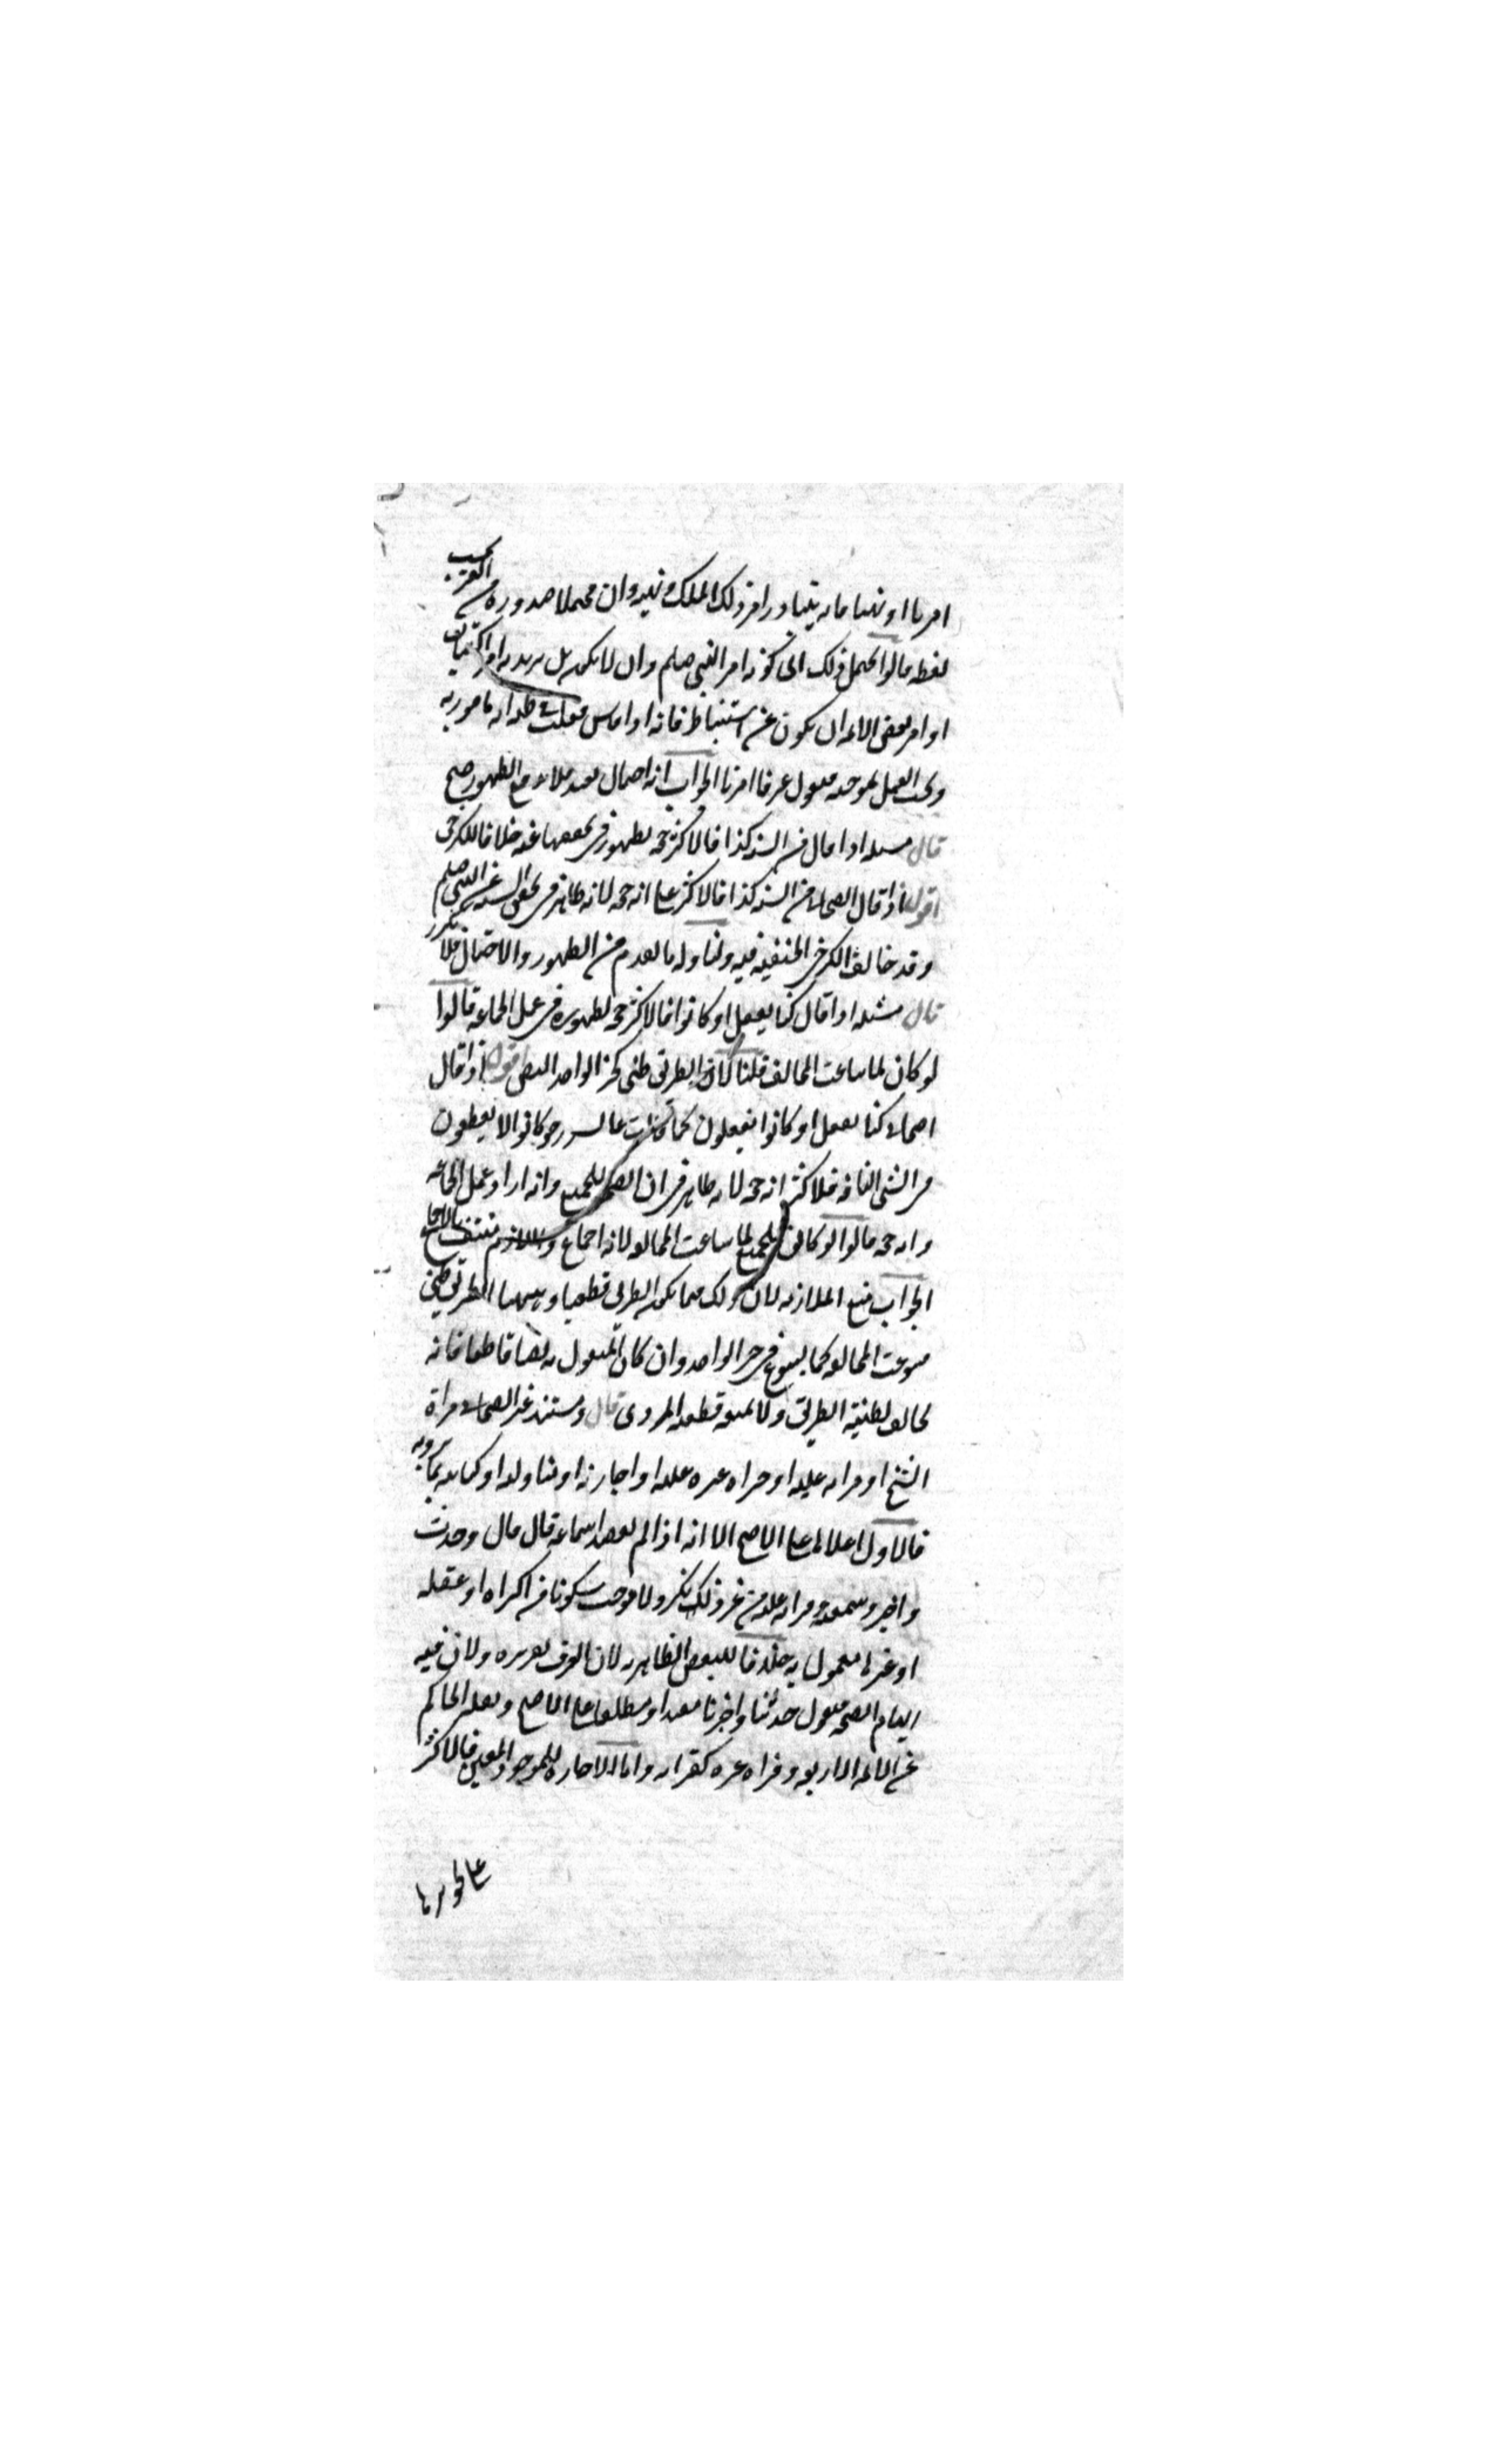 امرنا او نهينا فانه يتبادر امر ذلك الملك ونهيه وان محتملا صدوره من القريب بحسب
لفظه قالوا يحتمل ذلك اى كونه امر النبى صلعم وان لا يكون بل يريد به امر الكتاب
او امر بعض الائمه او ان يكون عن استنباط فانه اذا قاس فغلب ظنه انه مامور به
ويجب العمل بموجبه فيقول عرفا امرنا الجواب انه احتمال بعيد فلا يدفع الظهور صح
قال مسئله اذا قال من السنه كذا فالاكثر حجه لظهوره فى تحققها عنه خلافا للكرخى
اقول اذا قال الصحابى من السنه كذا فالاكثر على انه حجه لانه ظاهر فى تحقق السنه عن النبى صلعم
وقد خالف الكرخى الحنفيه فيه ولنا وله ما تقدم من الظهور والاحتمال فلا نكرر
قال مسئله اذا قال كنا نفعل او كانوا فالاكثر حجه لظهوره فى عمل الجماعه قالوا
لو كان لما ساغت المخالفه قلنا لان الطريق ظنى كخبر الواحد النص اقول اذا قال
الصحابى كنا نفعل او كانوا يفعلون كما قالت عايشه رض كانوا لا يقطعون
فى الشئ التافه فالاكثر انه حجه لانه ظاهر فى ان الضمير للجميع وانه اراد عمل الجماعه
وانه حجه قالوا لو كان للجميع لما ساغت المخالفه لانه اجماع واللازم منتف بالاجماع
الجواب منع الملازمه لان ذلك فيما يكون الطريق قطعيا وههنا الطريق ظنى
فسوغت المخالفه كما يسوغ فى خبر الواحد وان كان المنقول به نصا قاطعا فانه
يخالف لظنيه الطريق ولا يمنعه قطعيه المروى قال ومستند غير الصحابى قراءة
الشيخ او قراته عليه او قراه غيره عليه او اجازته او مناولته او كتابته بما يرويه
فالاول اعلاها على الاصح الا انه اذا لم يقصد اسماعه قال قال وحدث
واخبر وسمعته وقراته عليه من غير ذلك نكير ولا موجب سكوتا من اكراه او غفله
او غيرها معمول به خلافا لبعض الظاهريه لان العرف تقريره ولان فيه
ايهام الصحه فيقول حدثنا واخبرنا مقيدا ومطلقا على الاصح ونقله الحاكم
عن الائمه الاربعه وقراه غيره كقراته واما الاجازه للموجود المعين فالاكثر
على تجويزها